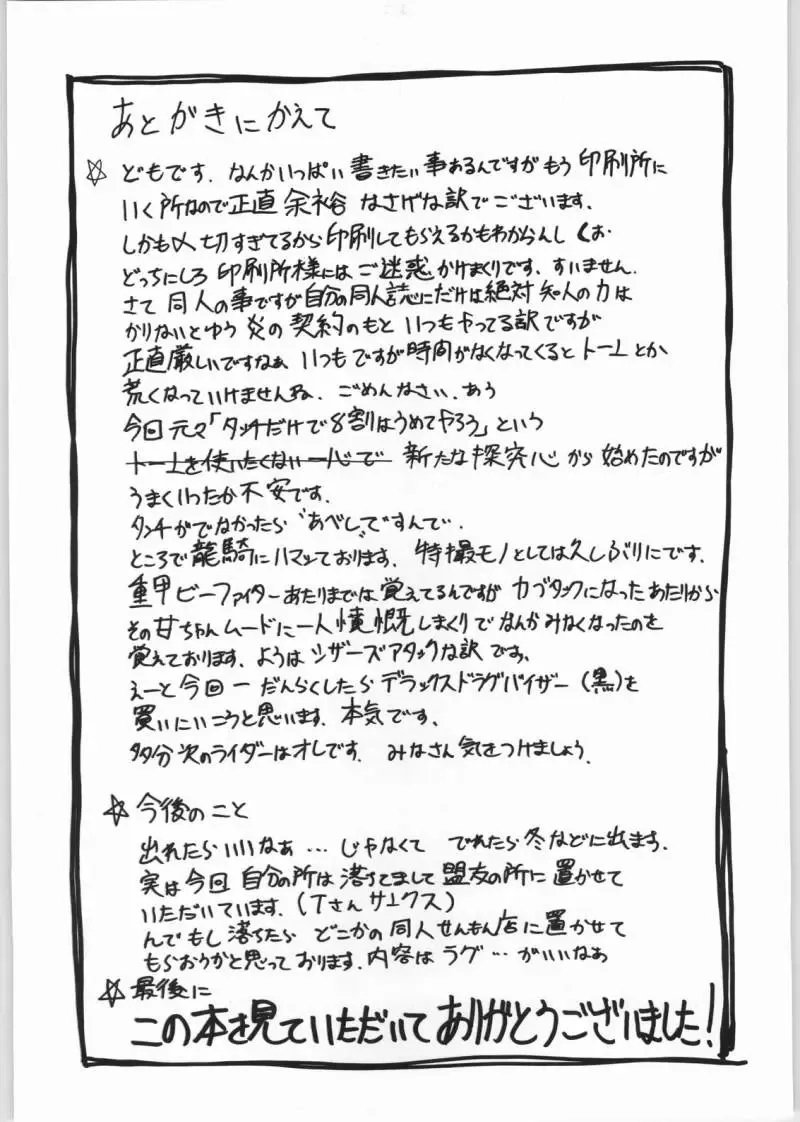 あとがきにかえて
☆ どもです. なんかいっぱい書きたい事あるんですがもう印刷所に
いく所なので正直余裕なさげな訳でございます.
しかも〆切すぎてるから印刷してもらえるかもわからんし くぉ.
どっちにしろ印刷所様にはご迷惑かけまくりです. すいません.
さて同人の事ですが自分の同人誌にだけは絶対知人の力は
かりないとゆう炎の契約のもといつもやってる訳ですが
正直厳しいですなぁ いつもですが時間がなくなってくるとトーンとか
荒くなっていけませんね. ごめんなさい. あぅ
今回元々「タッチだけで8割はうめてやろう」という
トーンを使いたくない一心で 新たな探究心から始めたのですが
うまくいったか不安です.
タッチがでなかったら"あべし"ですんで.
ところで龍騎にハマッております. 特撮モノとしては久しぶりにです.
重甲ビーファイターあたりまでは覚えてるんですがカブタックになったあたりから
その甘ちゃんムードに一人憤慨しまくりでなんかみなくなったのを
覚えております. ようはシザーズアタックな訳ですよ.
えーと今回一だんらくしたらデラックスドラグバイザー(黒)を
買いにいこうと思います. 本気です.
多分次のライダーはオレです. みなさん気をつけましょう.
☆ 今後のこと
出れたらいいなぁ…じゃなくて でれたら冬などに出ます.
実は今回自分の所は落ちてまして盟友の所に置かせて
いただいています.(Tさんサンクス)
んでもし落ちたらどこかの同人せんもん店に置かせて
もらおうかと思っております. 内容はラグ…がいいなぁ
☆ 最後に
この本を見ていただいてありがとうございました!